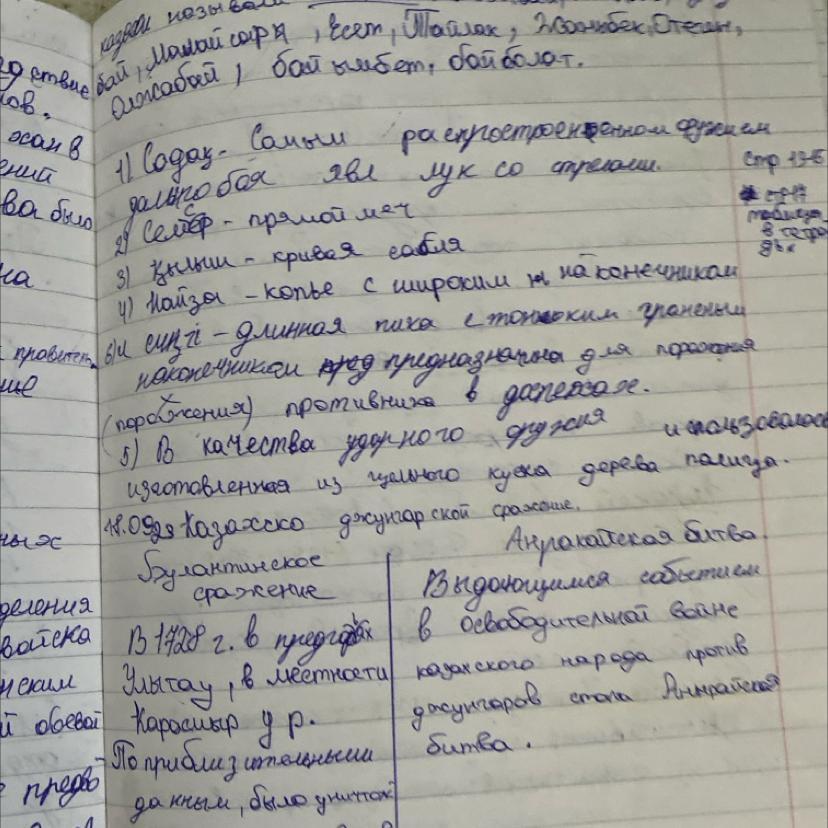 казахи называли
бай, Малайсары, Есет, Тайлак, Жанибек, Отеген,
Олжабай, байымбет, байболат.
1) Садақ - Самым распростроенненном оружием
дальнобоя явл лук со стрелами.
стр 13-15
стр 17
таблица
в тетра
дях
2) Семсер - прямой меч
3) қылыш - кривая сабля
4) Найза - копье с широким наконечником
6) и сүңгі - длинная пика с тонким граненым
наконечником предназначена для поражения
(поражения) противника в доспехах.
5) В качества ударного оружия использовалась
изготовленная из цельного куска дерева палица.
18.09.23 Казахско джунгарской сражение.
Булантинское
сражение
В 1728 г. в предгорьях
Улытау, в местности
Каросиыр у р.
По приблизительными
данным, было уничтож
Анракайская битва.
Выдающимся событием
в освободительной войне
казахского народа против
джунгаров стала Анырайская
битва.
дствие
ов.
хан в
ений
ва было
на
правител
ние
ных
деления
войска
нским
й боевой
предво